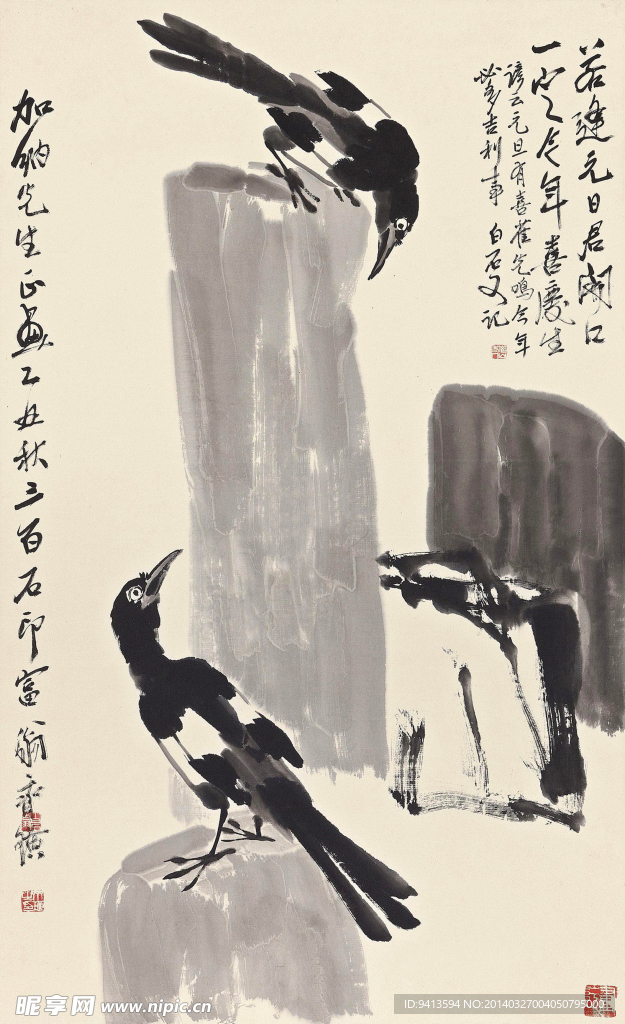 若逢元日君開口
一定今年喜慶生
諺云元旦有喜雀先鳴今年
必多吉利事 白石又記
加納先生正画乙丑秋三百石印富翁齊璜
昵享网 www.nipic.cn
ID:9413594 NO:20140327004050795000